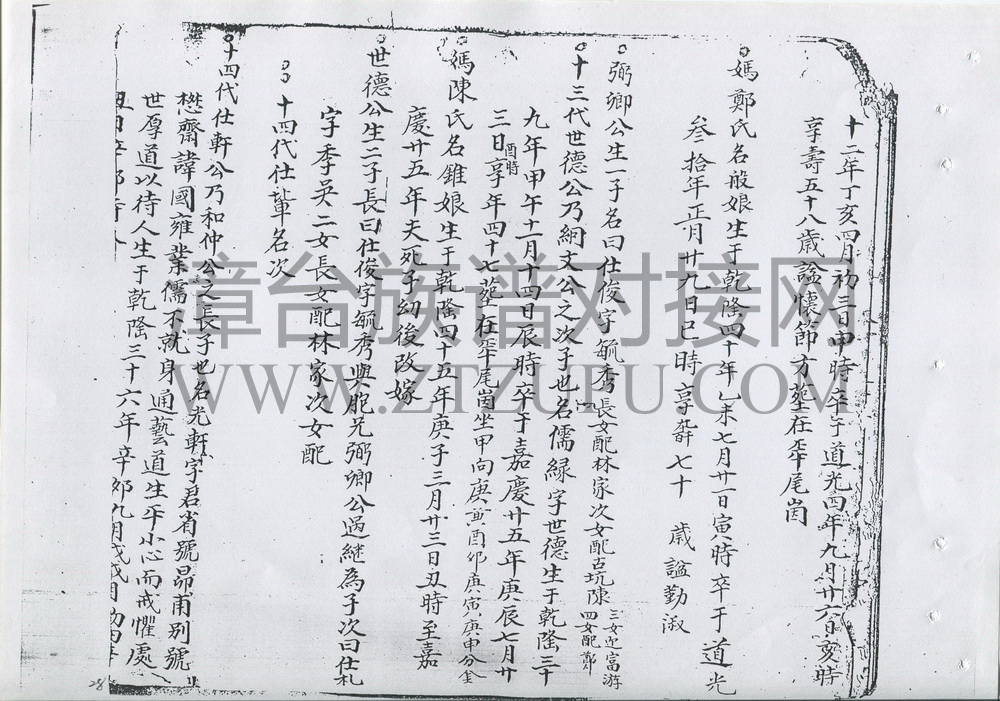 十二年丁亥四月初三日申時卒于道光四年九月廿六日亥時
享壽五十八歲諡懷節方塟在平尾崮
媽鄭氏名般娘生于乾隆四十年乙未七月廿一日寅時卒于道光
叁拾年正月廿九日巳時享壽七十 歲諡勤淑
弼卿公生一子名曰仕俊字毓秀長女配林家次女配古坑陳 三女 富游 四女配鄭
十三代世德公乃綱文公之次子也名儒緑字世德生于乾隆三十
九年甲午十二月十四日辰時卒于嘉慶廿五年庚辰七月廿
三日酉時享年四十七塟在平尾崮坐甲向庚 酉卯庚寅庚申分金
媽陳氏名雖娘生于乾隆四十五年庚子三月廿三日丑時至嘉
慶廿五年夫死子幼後改嫁
世德公生二子長曰仕俊字毓秀與胞兄弼卿公過継為子次曰仕札
字季吳二女長女配林家次女配
十四代仕輩名次
十四代仕軒公乃和仲公之長子也名光軒字君省號昴甫別號
懋齋諱國雍業儒不就身通藝道生平小心而戒懼處
世厚道以待人生于乾隆三十六年辛卯九月
28
漳台族谱对接网
WWW.ZTZUPU.COM